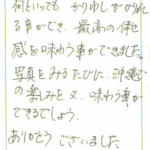 何といっても かりゆし かかりれ
る事ができ、最高の体
感を味わう事ができました。
写真をみるたびに、沖縄で
の楽しみを又、味わう事が
できるでしょう。
ありがとうございました。